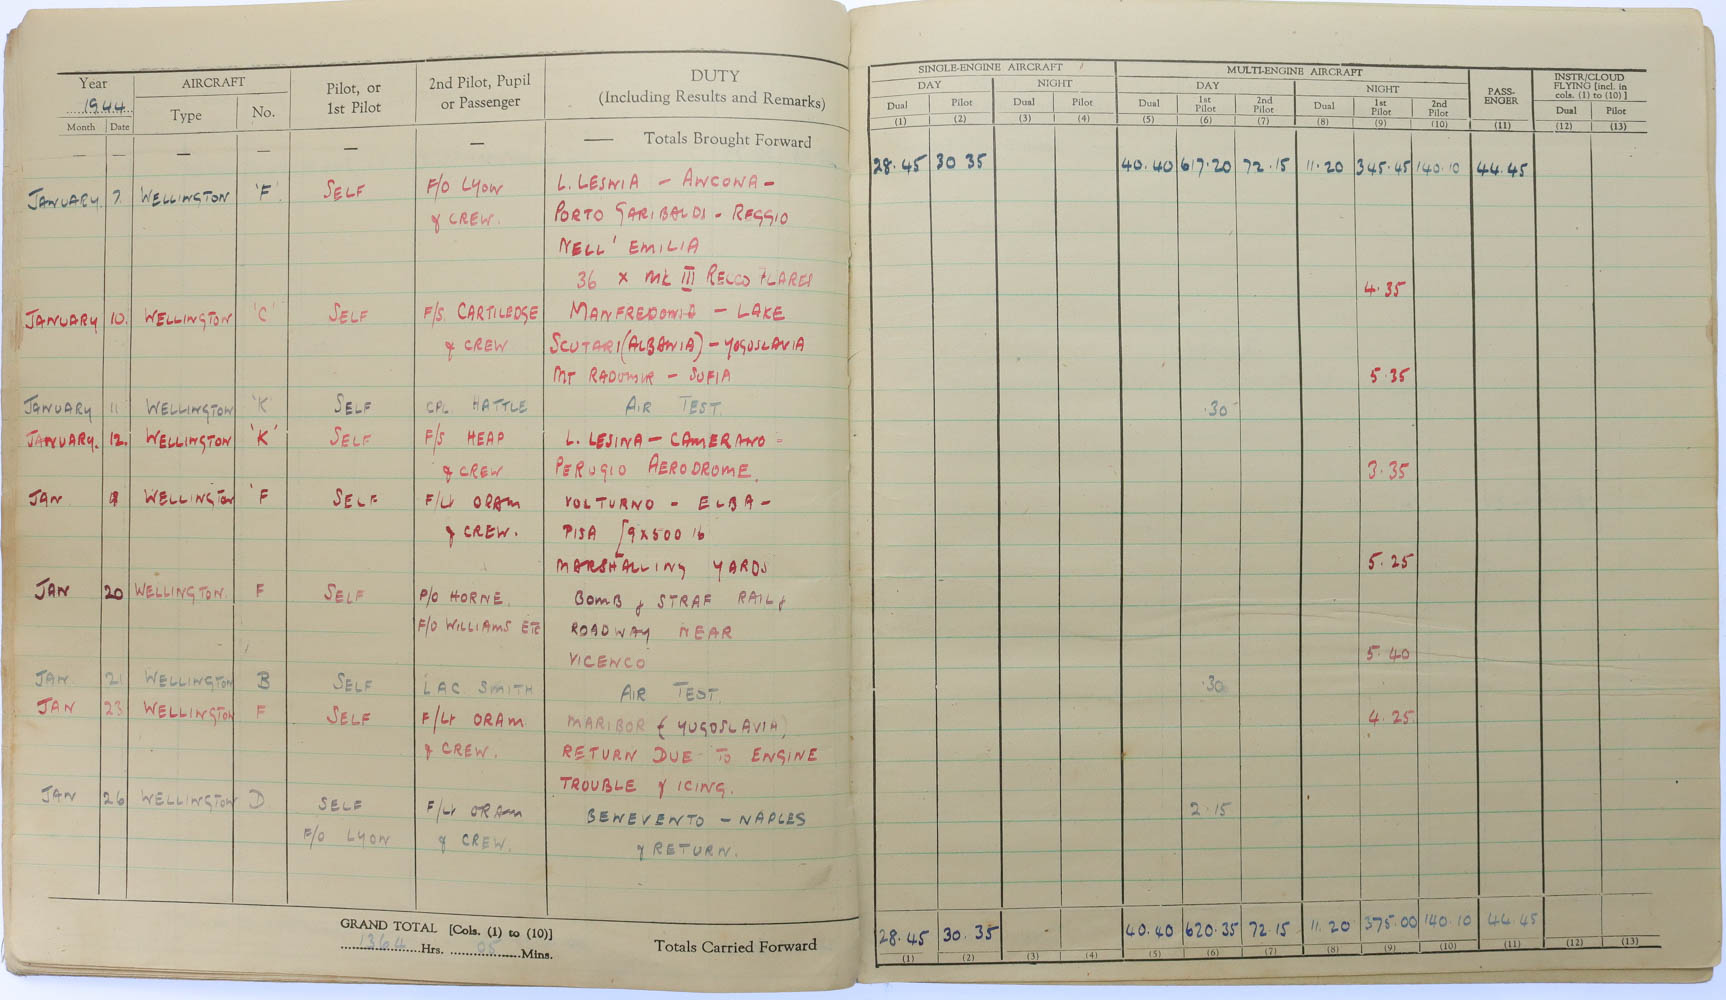 Year AIRCRAFT Pilot, or 1st Pilot 2nd Pilot, Pupil or Passenger DUTY (Including Results and Remarks)
1944 Type No.
Month Date
— — — — — — — Totals Brought Forward
JANUARY. 7. WELLINGTON 'F' SELF F/O LYON L. LESNIA - ANCONA -
& CREW. PORTO GARIBALDI - REGGIO
NELL' EMILIA
36 x MK III RECCO FLARES
JANUARY 10. WELLINGTON 'C' SELF F/S. CARTILEDGE MANFREDONIA - LAKE
& CREW SCUTARI (ALBANIA) - YOGOSLAVIA
MT RADOMIR - SOFIA
JANUARY 11 WELLINGTON 'K' SELF CPL HATTLE AIR TEST.
JANUARY. 12. WELLINGTON 'K' SELF F/S HEAP L. LESINA - CAMERANO -
& CREW PERUGIO AERODROME.
JAN WELLINGTON 'F SELF F/Lt ORAM VOLTURNO - ELBA -
& CREW. PISA [9x500 lb
MARSHALLING YARDS
JAN 20 WELLINGTON. F SELF P/O HORNE. BOMB & STRAF RAIL &
F/O WILLIAMS ETC ROADWAY NEAR
VICENCO
JAN 21 WELLINGTON B SELF LAC SMITH AIR TEST.
JAN 23 WELLINGTON F SELF F/Lt ORAM MARIBOR (YUGOSLAVIA)
& CREW. RETURN DUE TO ENGINE
TROUBLE & ICING.
JAN 26 WELLINGTON D SELF F/Lt ORAM BENEVENTO - NAPLES
F/O LYON & CREW. & RETURN.
GRAND TOTAL [Cols. (1) to (10)]
1364 Hrs. 05 Mins. Totals Carried Forward
SINGLE-ENGINE AIRCRAFT MULTI-ENGINE AIRCRAFT PASS-ENGER INSTR/CLOUD FLYING [incl. in cols. (1) to (10)]
DAY NIGHT DAY NIGHT
Dual Pilot Dual Pilot Dual 1st Pilot 2nd Pilot Dual 1st Pilot 2nd Pilot Dual Pilot
(1) (2) (3) (4) (5) (6) (7) (8) (9) (10) (11) (12) (13)
28.45 30 35 40.40 617.20 72.15 11.20 345.45 140.10 44.45
4.35
5.35
.30
3.35
5.25
5.40
.30
4.25
2.15
28.45 30.35 40.40 620.35 72.15 11.20 375.00 140.10 44.45
(1) (2) (3) (4) (5) (6) (7) (8) (9) (10) (11) (12) (13)